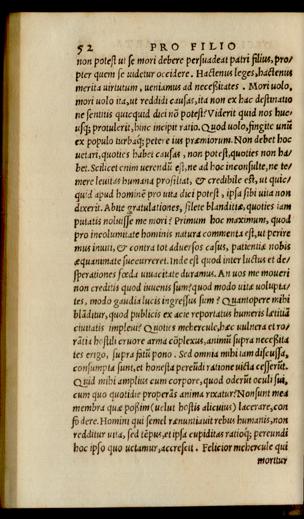 52 PRO FILIO
non potest ut se mori debere persuadeat patri filius, pro/
pter quem se uidetur occidere. Hactenus leges, hactenus
merita uirtutum, ueniamus ad necessitates. Mori uolo,
mori uolo ita, ut reddidi causas, ita non ex hac destinatio
ne sentitis quicquid dici nō potest? Viderit quid nos huc=
usq; protulerit, hinc incipit ratio. Quod uolo, fingite unū
ex populo turbaq; peter e ius præmiorum. Non debet hoc
uetari, quoties habet causas, non potest, quoties non ha/
bet. Scilicet enim uerendū est, ne ad hoc inconsulte, ne te/
mere leuitas humana prosiliat, & credibile est, ut quic/
quid apud hominē pro uita dici potest, ipsa sibi uita non
dixerit. Abite gratulationes, silete blanditiæ, quoties iam
putatis noluisse me mori? Primum hoc maximum, quod
pro incolumitate hominis natura commenta est, ut perire
mus inuiti, & contra tot aduersos casus, patientiæ nobis
æquanimitate succurreret. Inde est quod inter luctus et de/
sperationes fœda uiuacitate duramus. An uos me moueri
non creditis quod iuuenis sum? quod modo uitæ uolupta/
tes, modo gaudia lucis ingressus sum? Quantopere mihi
blāditur, quod publicis ex acie reportatus humeris lætitiā
ciuitatis impleui? Quoties mehercule, hæc uulnera et ro/
rātia hostili cruore arma cōplexus, animū supra necessita
tes erigo, supra fatū pono. Sed omnia mihi iam discussa,
consumpta sunt, et honesta pereūdi ratione uicta cesserūt.
Quid mihi amplius cum corpore, quod oderūt oculi sui,
cum quo quotidie properās anima rixatur? Non sunt mea
membra quæ possim (uelut hostis alicuius) lacerare, con
fodere. Homini qui semel rænuntiauit rebus humanis, non
redditur uita, sed tēpus, et ipsa cupiditas ratioq; pereundi
hoc ipso quo uetamur, accrescit. Felicior mehercule qui
moritur